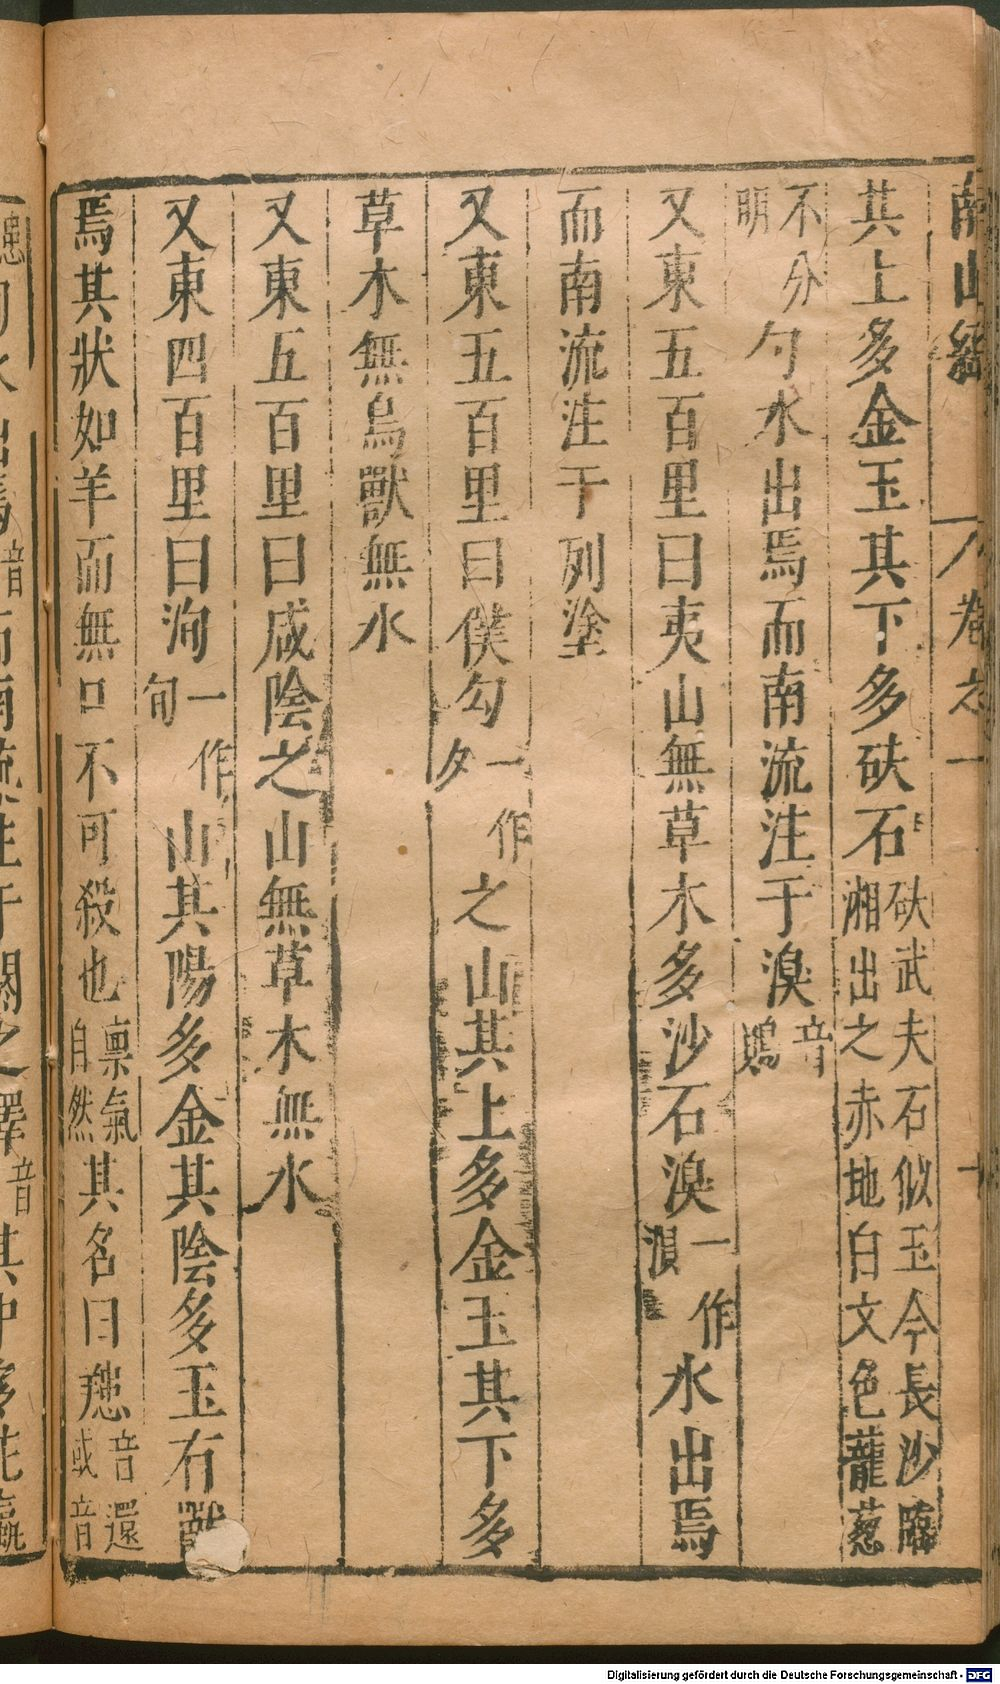 南山經 卷之一 十
其上多金玉其下多砆石砆武夫石似玉今長沙臨湘出之赤地白文色蘢蔥
不分明勺水出焉而南流注于湨音鶪
又東五百里曰夷山無草木多沙石湨一作浿水出焉
而南流注于列塗
又東五百里曰僕勾一作夕之山其上多金玉其下多
草木無鳥獸無水
又東五百里曰咸陰之山無草木無水
又東四百里曰洵一作旬山其陽多金其陰多玉有獸
焉其狀如羊而無口不可殺也稟氣自然其名曰䍺音還或音
患洵水出焉音而南流注于閼之澤音其中多芘蠃
Digitalisierung gefördert durch die Deutsche Forschungsgemeinschaft - DFG